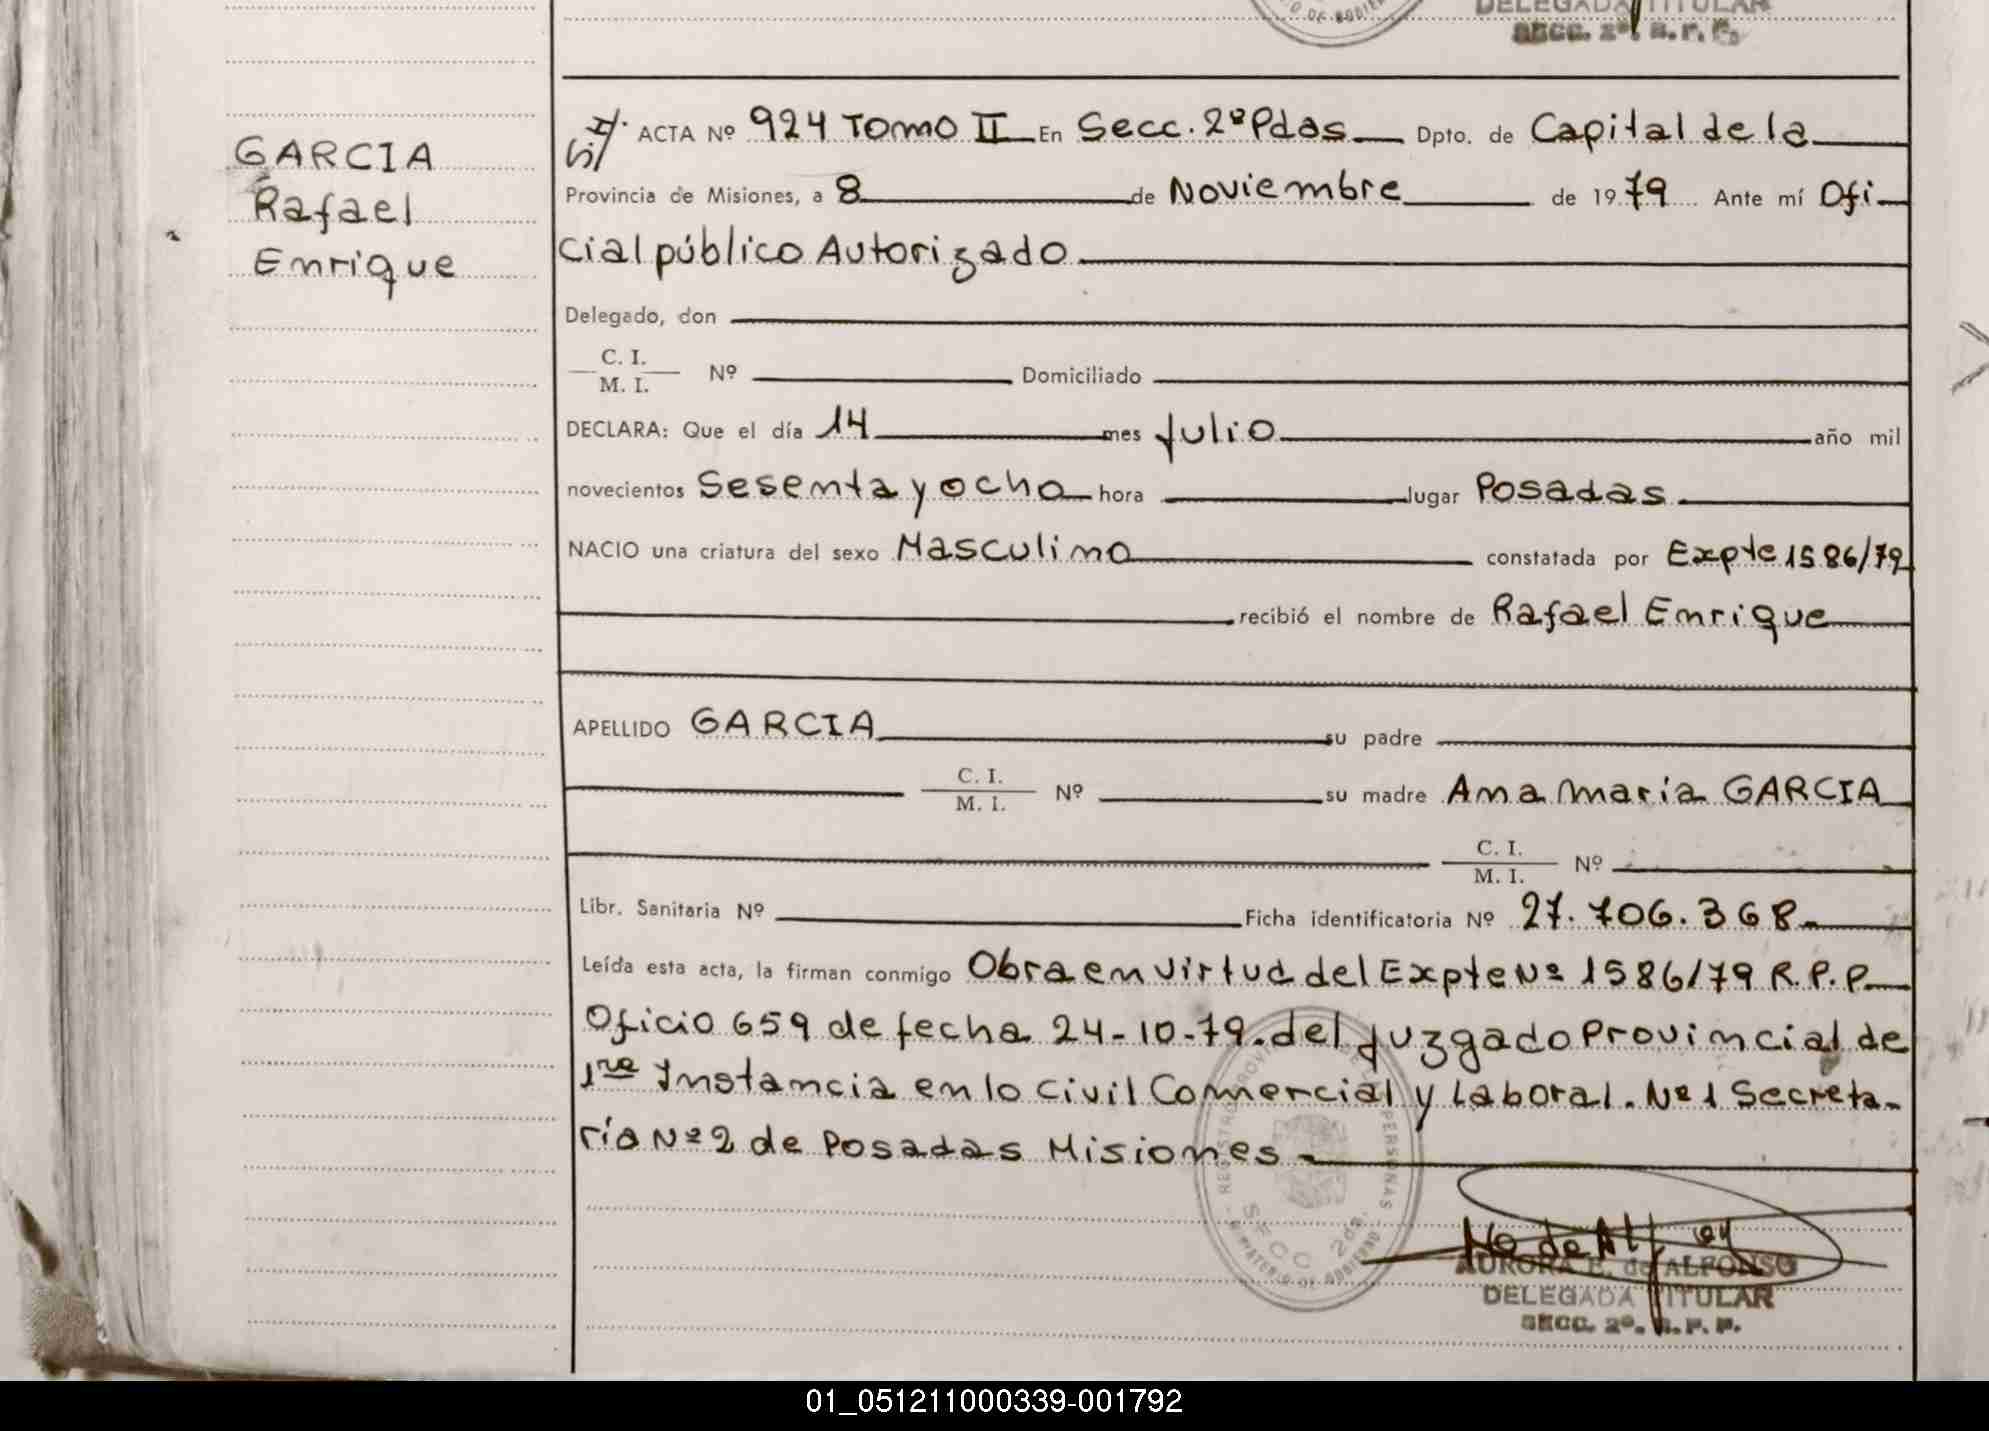 DELEGADA TITULAR
SECC. 2ª. R. P. P.
GARCIA
Rafael
Enrique
ACTA Nº 924 Tomo II En Secc. 2ª Pdas Dpto. de Capital de la
Provincia de Misiones, a 8 de Noviembre de 1979 Ante mí Ofi
cial público Autorizado
Delegado, don
C. I.
M. I. Nº Domiciliado
DECLARA: Que el día 14 mes Julio año mil
novecientos Sesenta y ocho hora lugar Posadas
NACIO una criatura del sexo Masculino constatada por Expte 1586/79
recibió el nombre de Rafael Enrique
APELLIDO GARCIA su padre
C. I.
M. I. Nº su madre Ana Maria GARCIA
C. I.
M. I. Nº
Libr. Sanitaria Nº Ficha identificatoria Nº 27.706.368
Leída esta acta, la firman conmigo Obra en virtud del Expte Nº 1586/79 R.P.P
Oficio 659 de fecha 24-10-79. del Juzgado Provincial de
1ra Instancia en lo Civil Comercial y Laboral. Nº 1 Secreta-
ría Nº 2 de Posadas Misiones
AURORA E. de ALFONSO
DELEGADA TITULAR
SECC. 2ª. R. P. P.
01_051211000339-001792